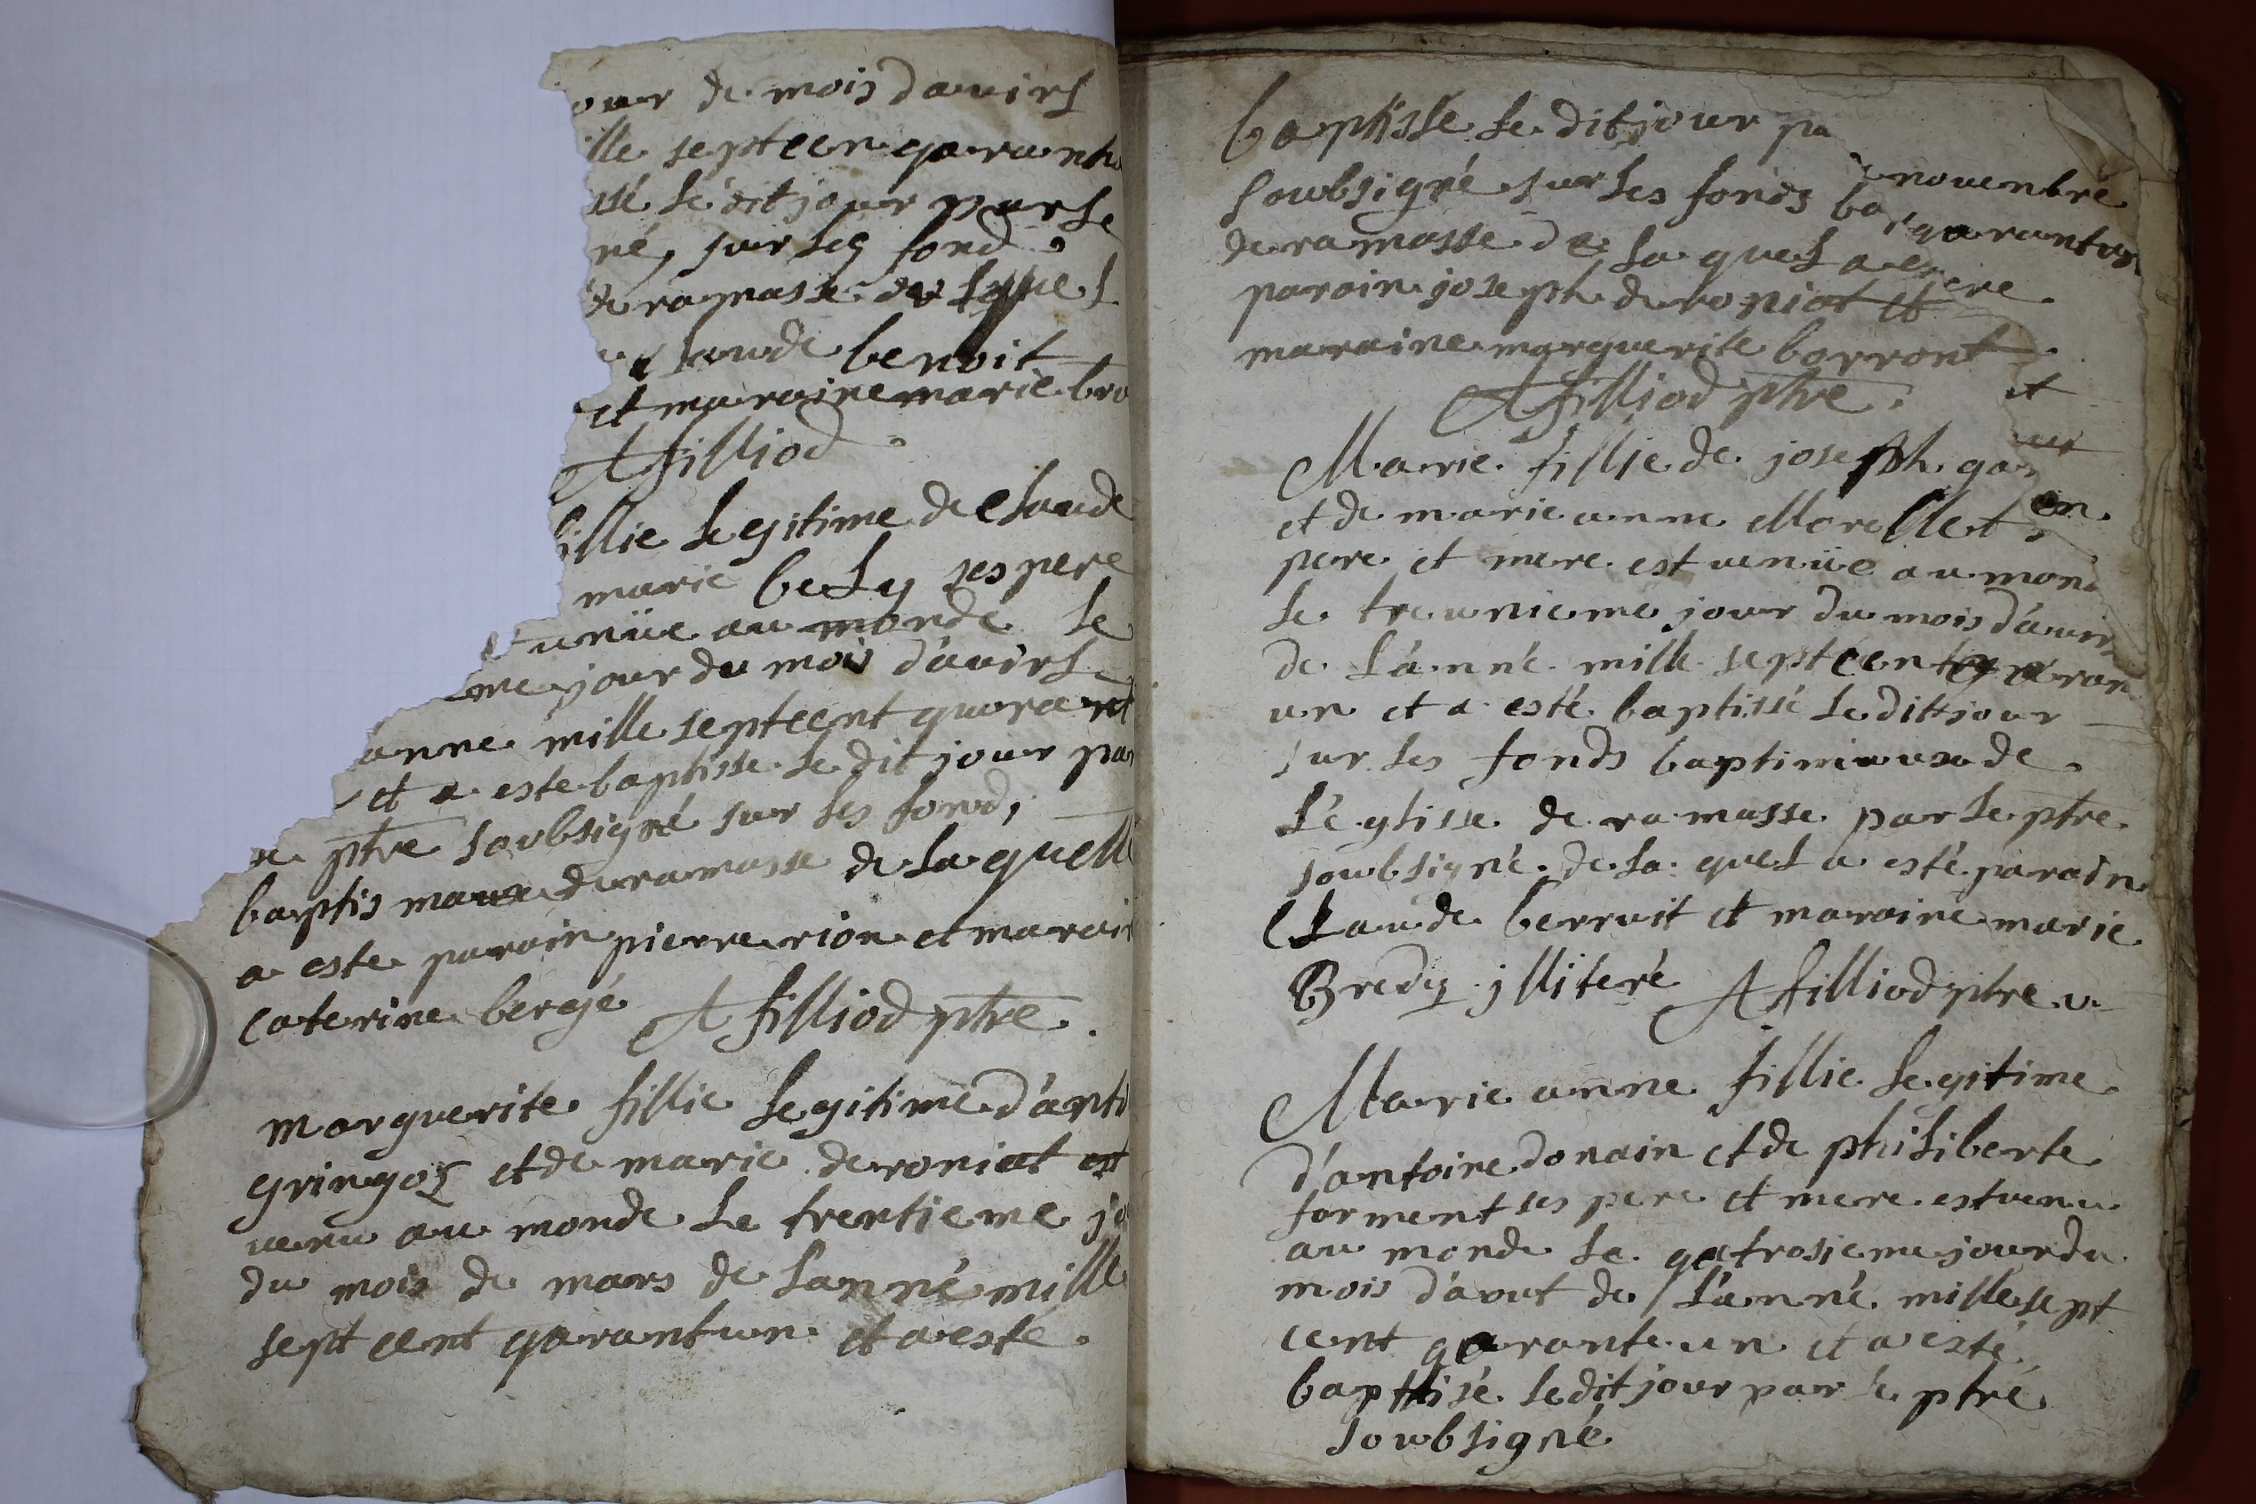 our de mois dauirl
ille septcen qaranto
ssé le dit jour par le
né, sur les fond
de ramasse de lquel
claude benoit
et maraine marie bro
A filliod
fillie legitime de claude
marie bely ses pere
unüe au monde le
me jour du mois d'auirl
anne mille septcent quarant
et a este baptisse le dit jour par
ptre soubsigné sur les fond,
baptismaux de ramasse de la quell
a este parain pierre rion et marai
caterine bergé A filliod ptre.
marguerite fillie legitime d'anto
gringoz et de marie deroniat est
uenu au monde le trentieme jo
du mois de mars de lanné mille
sept cent qarantun et a este
baptisse le dit jour pa
soubsigné sur les fonds ba
de ramasse de la quel a e
parain joseph de roniat et
maraine marguerite borront
A filliod ptre.
nouenbre
qarantun
ere
et
en
Marie fillie de joseph ga
et de marie anne Morellet
pere et mere est uenüe au mon
le treunieme jour du mois d'auir
de l'anné mille septcent qaran
un et a esté baptissé le dit jour
sur les fonds baptimaux de
l'eglisse de ramasse par le ptre
soubsigné de la quel a esté parain
Claude berruit et maraine marie
Bredy jllitéré A filliod ptre u
Marie anne fillie legitime
d'antoine donain et de philiberte
forment ses pere et mere est uenu
au monde le qatrosieme jour du
mois d'aout de l'anné mille sept
cent qarante un et a esté
baptisé le dit jour par le ptré
soubsigné